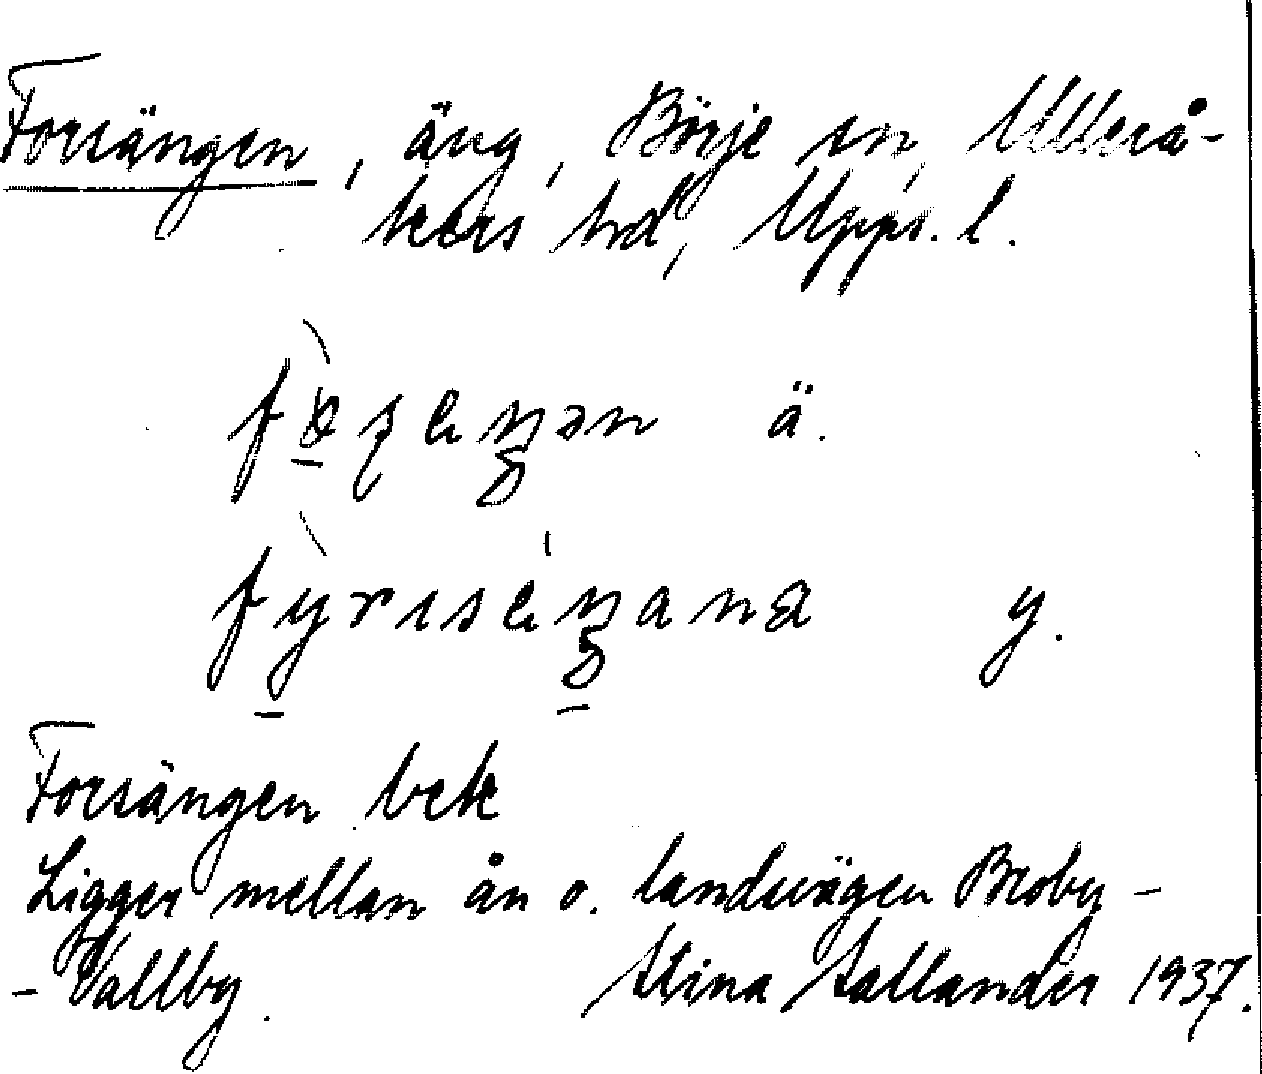 Forsängen, äng, Börje sn, Ullerå-
kers hd, Upps. l.
ä.
y.
Forsängen bek
Ligger mellan ån o. landsvägen Broby -
- Vallby. Stina Hallander 1937.